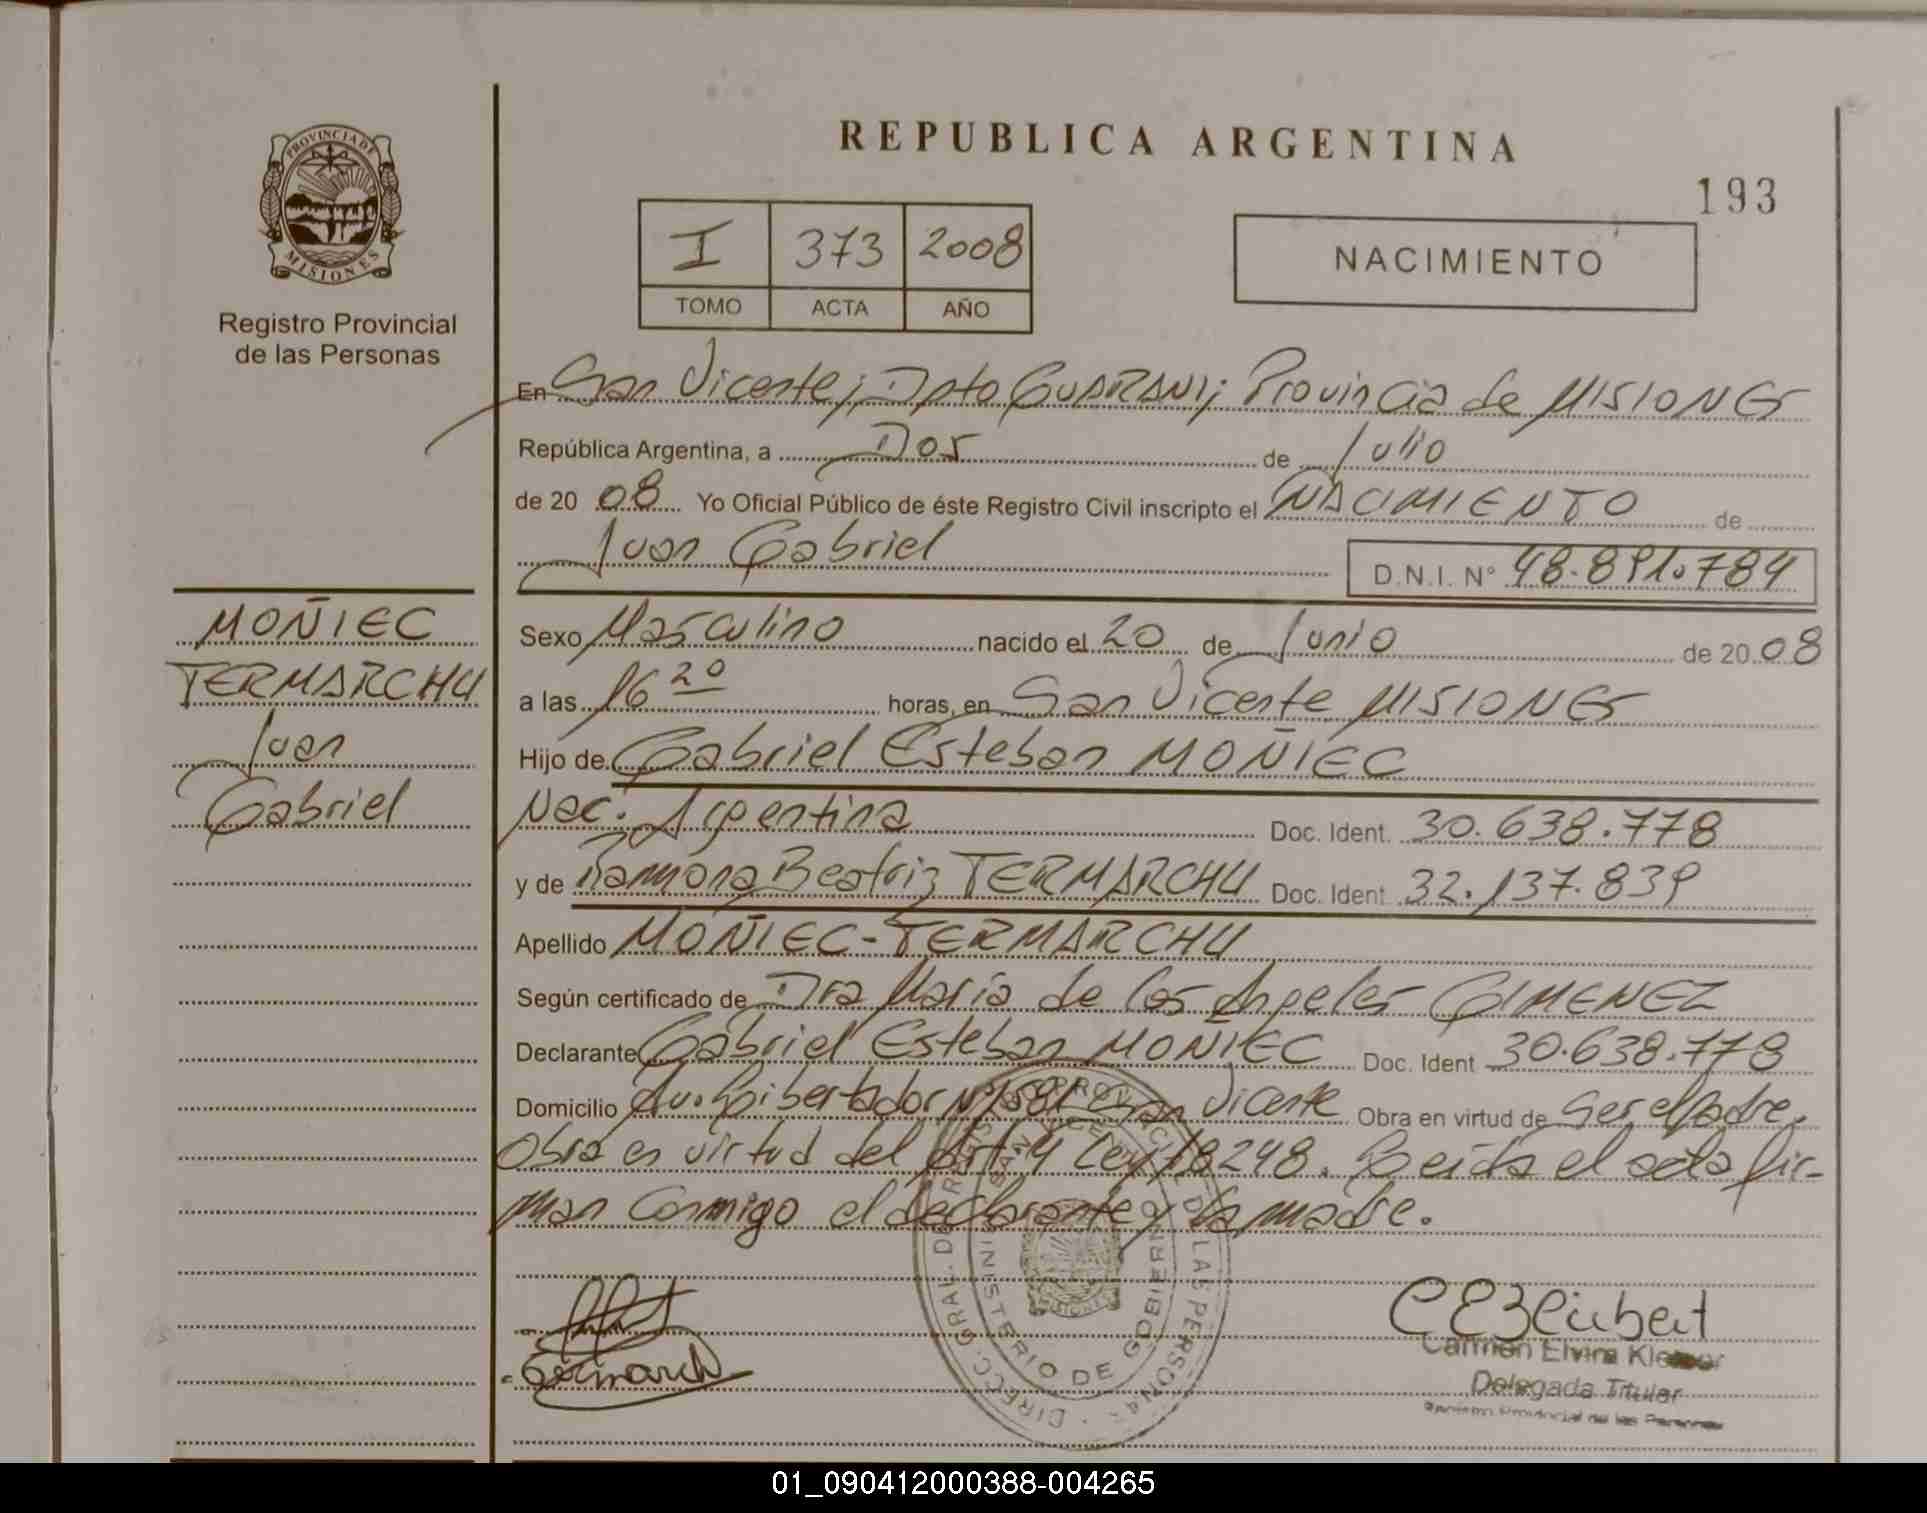 PROVINCIA DE
MISIONES
Registro Provincial
de las Personas
REPUBLICA ARGENTINA
193
I 373 2008
TOMO ACTA AÑO
NACIMIENTO
En San Vicente; Dpto GUARANI; Provincia de MISIONES
República Argentina, a Dos de Julio
de 20 08 Yo Oficial Público de éste Registro Civil inscripto el NACIMIENTO de
Juan Gabriel D.N.I. N° 48.891.784
MOÑIEC
TERMARCHU
Juan
Gabriel
Sexo Masculino nacido el 20 de Junio de 20 08
a las 16 20 horas, en San Vicente MISIONES
Hijo de Gabriel Esteban MOÑIEC
Nac. Argentina Doc. Ident. 30.638.778
y de Ramona Beatriz TERMARCHU Doc. Ident 32.137.839
Apellido MOÑIEC-TERMARCHU
Según certificado de Dra Maria de los Angeles GIMENEZ
Declarante Gabriel Esteban MOÑIEC Doc. Ident 30.638.778
Domicilio Av. Libertador N° 1581 San Vicente Obra en virtud de Ser el Padre.
Obra en virtud del Art. 4 Ley 18248. Leída el acta fir-
man conmigo el declarante y la madre.
DIRECC. GRAL. DE REGISTRO PROVINCIAL DE LAS PERSONAS
SAN VICENTE
MINISTERIO DE GOBIERNO
MISIONES
Carmen Elvira
Delegada Titular
Registro Provincial de las Personas
01_090412000388-004265